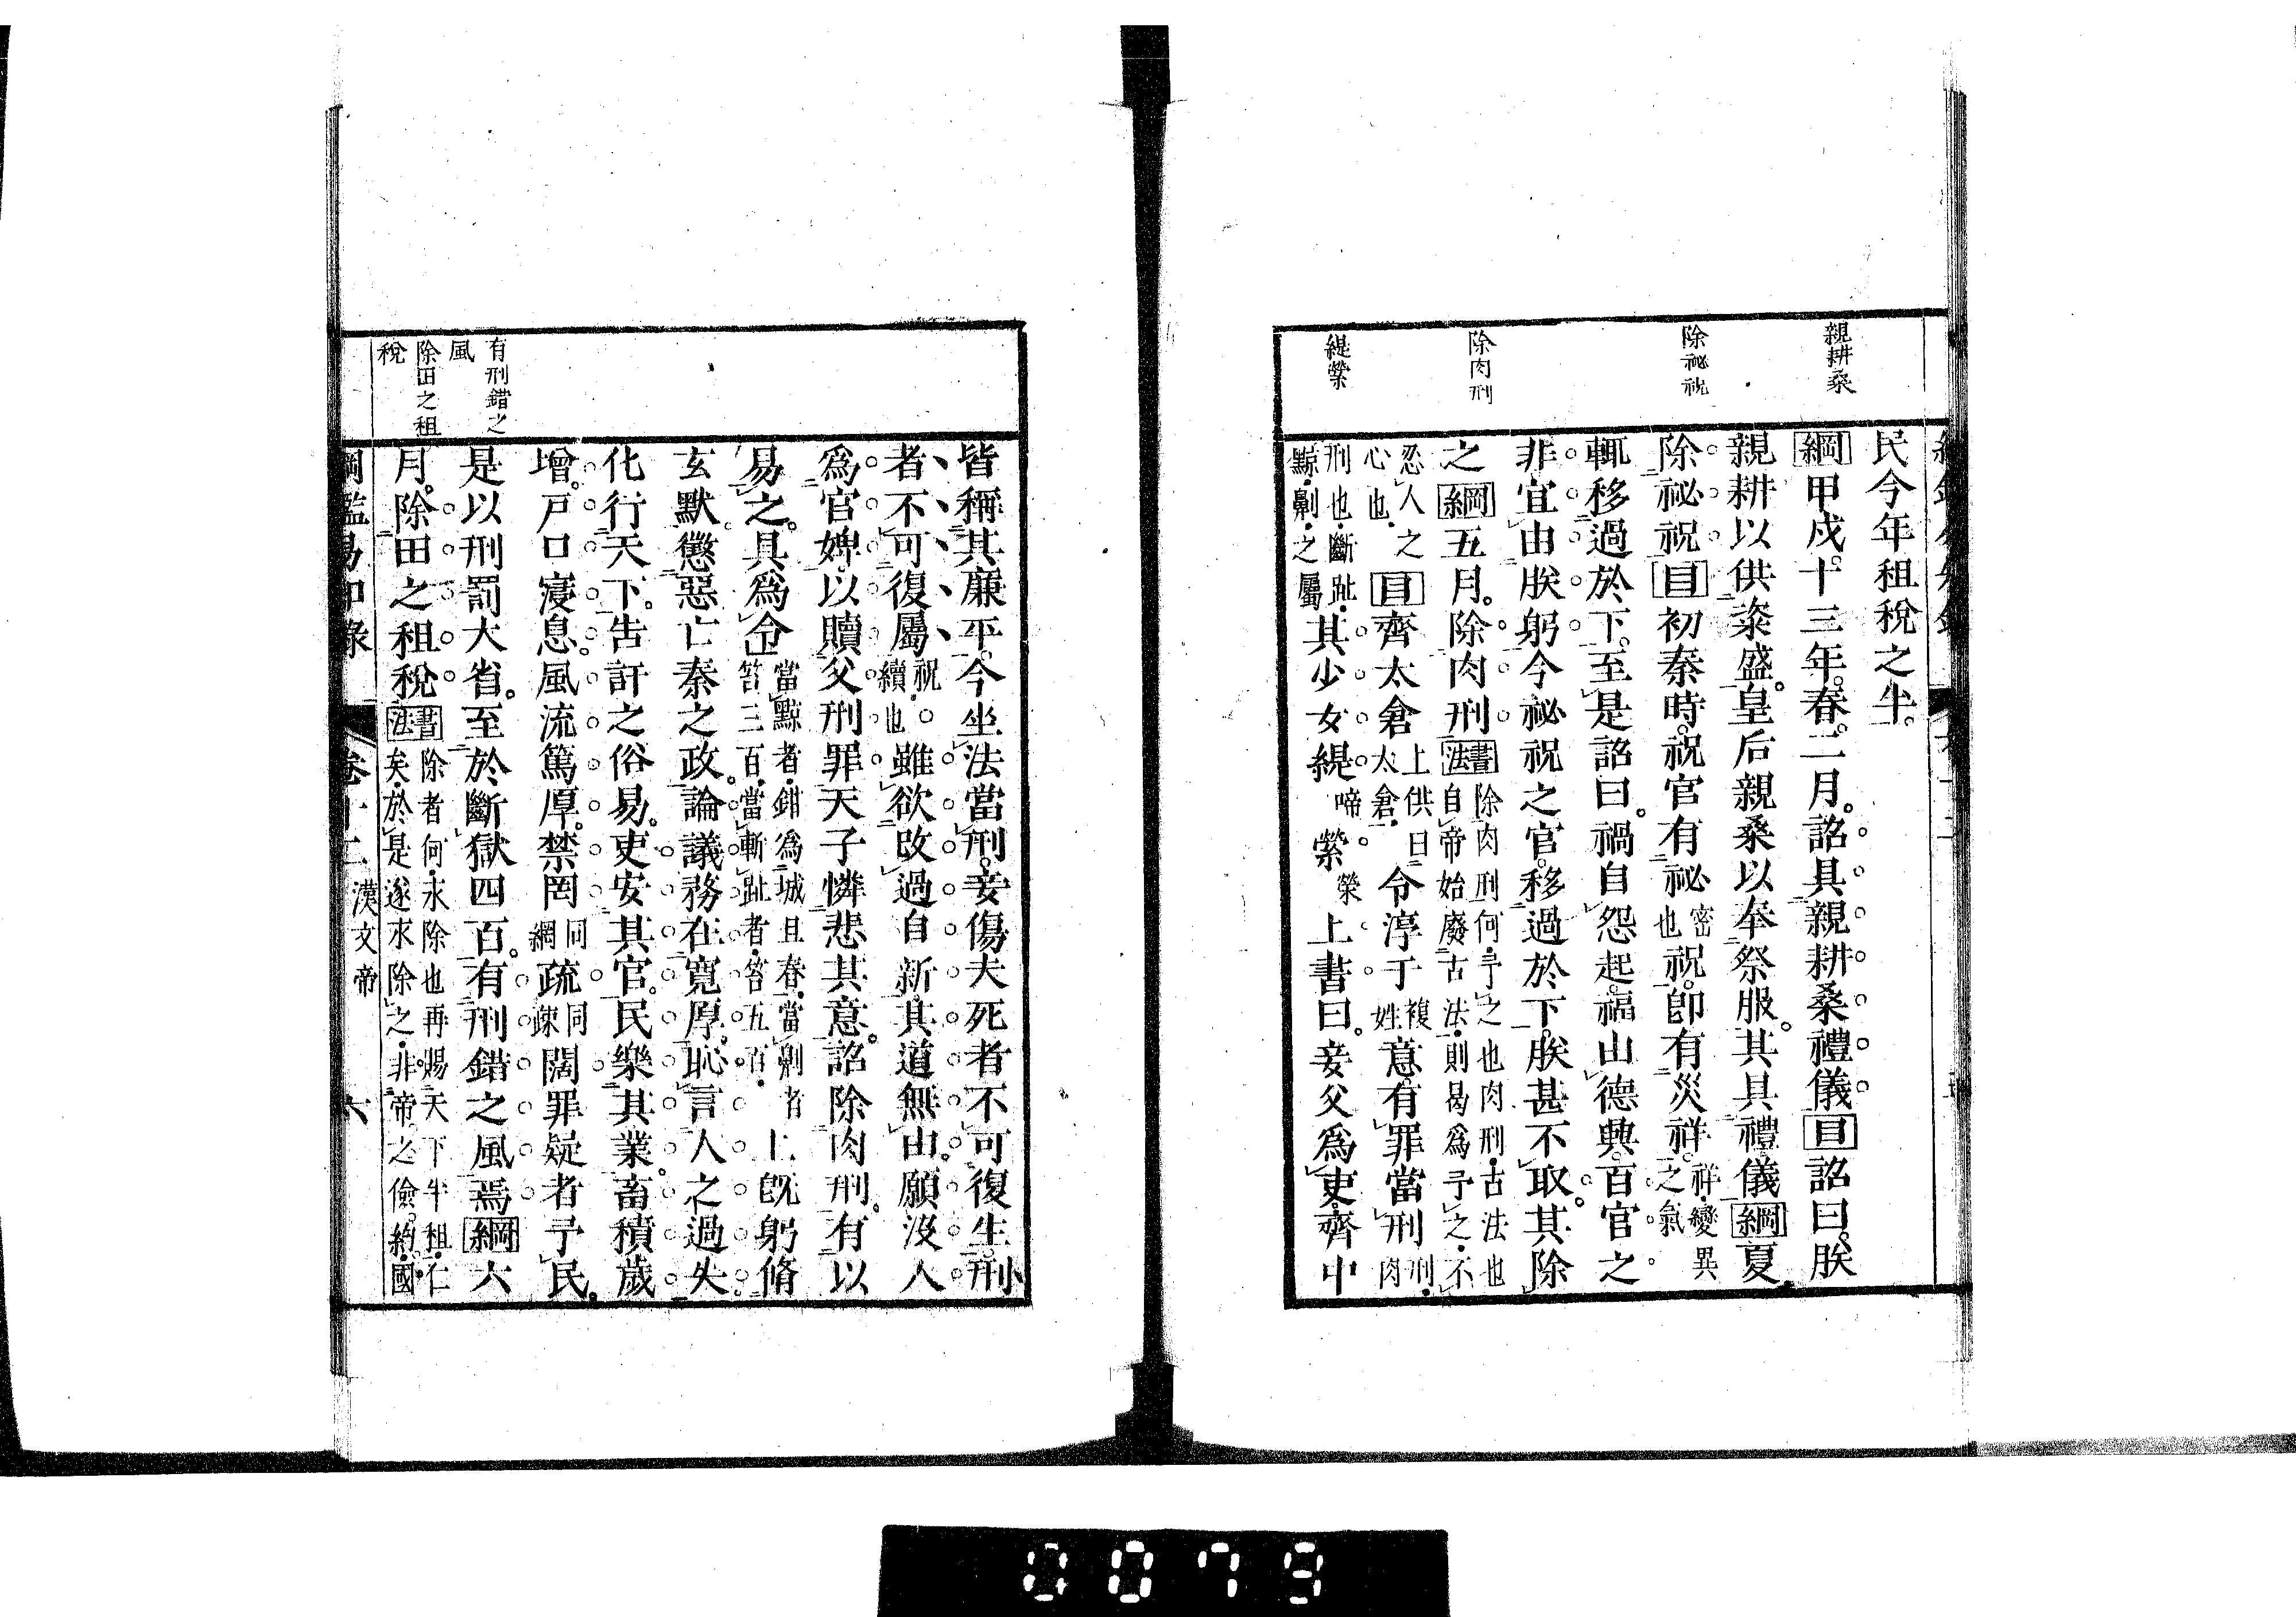 親耕桑
除祕祝
除肉刑
緹縈
民今年租稅之半。
綱甲戍。十三年。春。二月。詔具親耕桑禮儀目詔曰。朕
親耕以供粢盛。皇后親桑以奉祭服。其具禮儀綱夏。
除祕祝目初秦時。祝官有祕密也祝。卽有災祥。祥・變異之氣
輒移過於下。至是詔曰。禍自怨起。福由德興。百官之
非宜由朕躬今祕祝之官。移過於下。朕甚不取。其除
之綱五月。除肉刑書法除肉刑何・予之也肉刑・古法也自帝始廢古法・則曷爲予之・不
忍人之心也・目齊太倉上供曰太倉・令淳于複姓意。有罪當刑刑・肉
刑也・斷趾・黥・劓・之屬其少女緹啼縈榮上書曰。妾父爲吏。齊中
有刑錯之風
除田之租稅
皆稱其廉平。今坐法當刑。妾傷夫死者不可復生。刑
者不可復屬祝・續也雖欲改過自新。其道無由。願沒入
爲官婢。以贖父刑罪天子憐悲其意。詔除肉刑。有以
易之。具爲令當黥者・鉗爲城旦舂・當劓者笞三百・當斬趾者・笞五百・上旣躬脩
玄默。懲惡亡秦之政。論議務在寬厚。恥言人之過失
化行天下。告訐之俗易。吏安其官。民樂其業。畜積歲
增。戶口寖息。風流篤厚。禁罔同網疏同疎闊罪疑者予民。
是以刑罰大省。至於斷獄四百。有刑錯之風焉綱六
月。除田之租稅書法除者何・永除也再賜天下半租・仁矣・於是遂永除之・非帝之儉約・國
綱鑑易知錄 卷十二 漢文帝 六